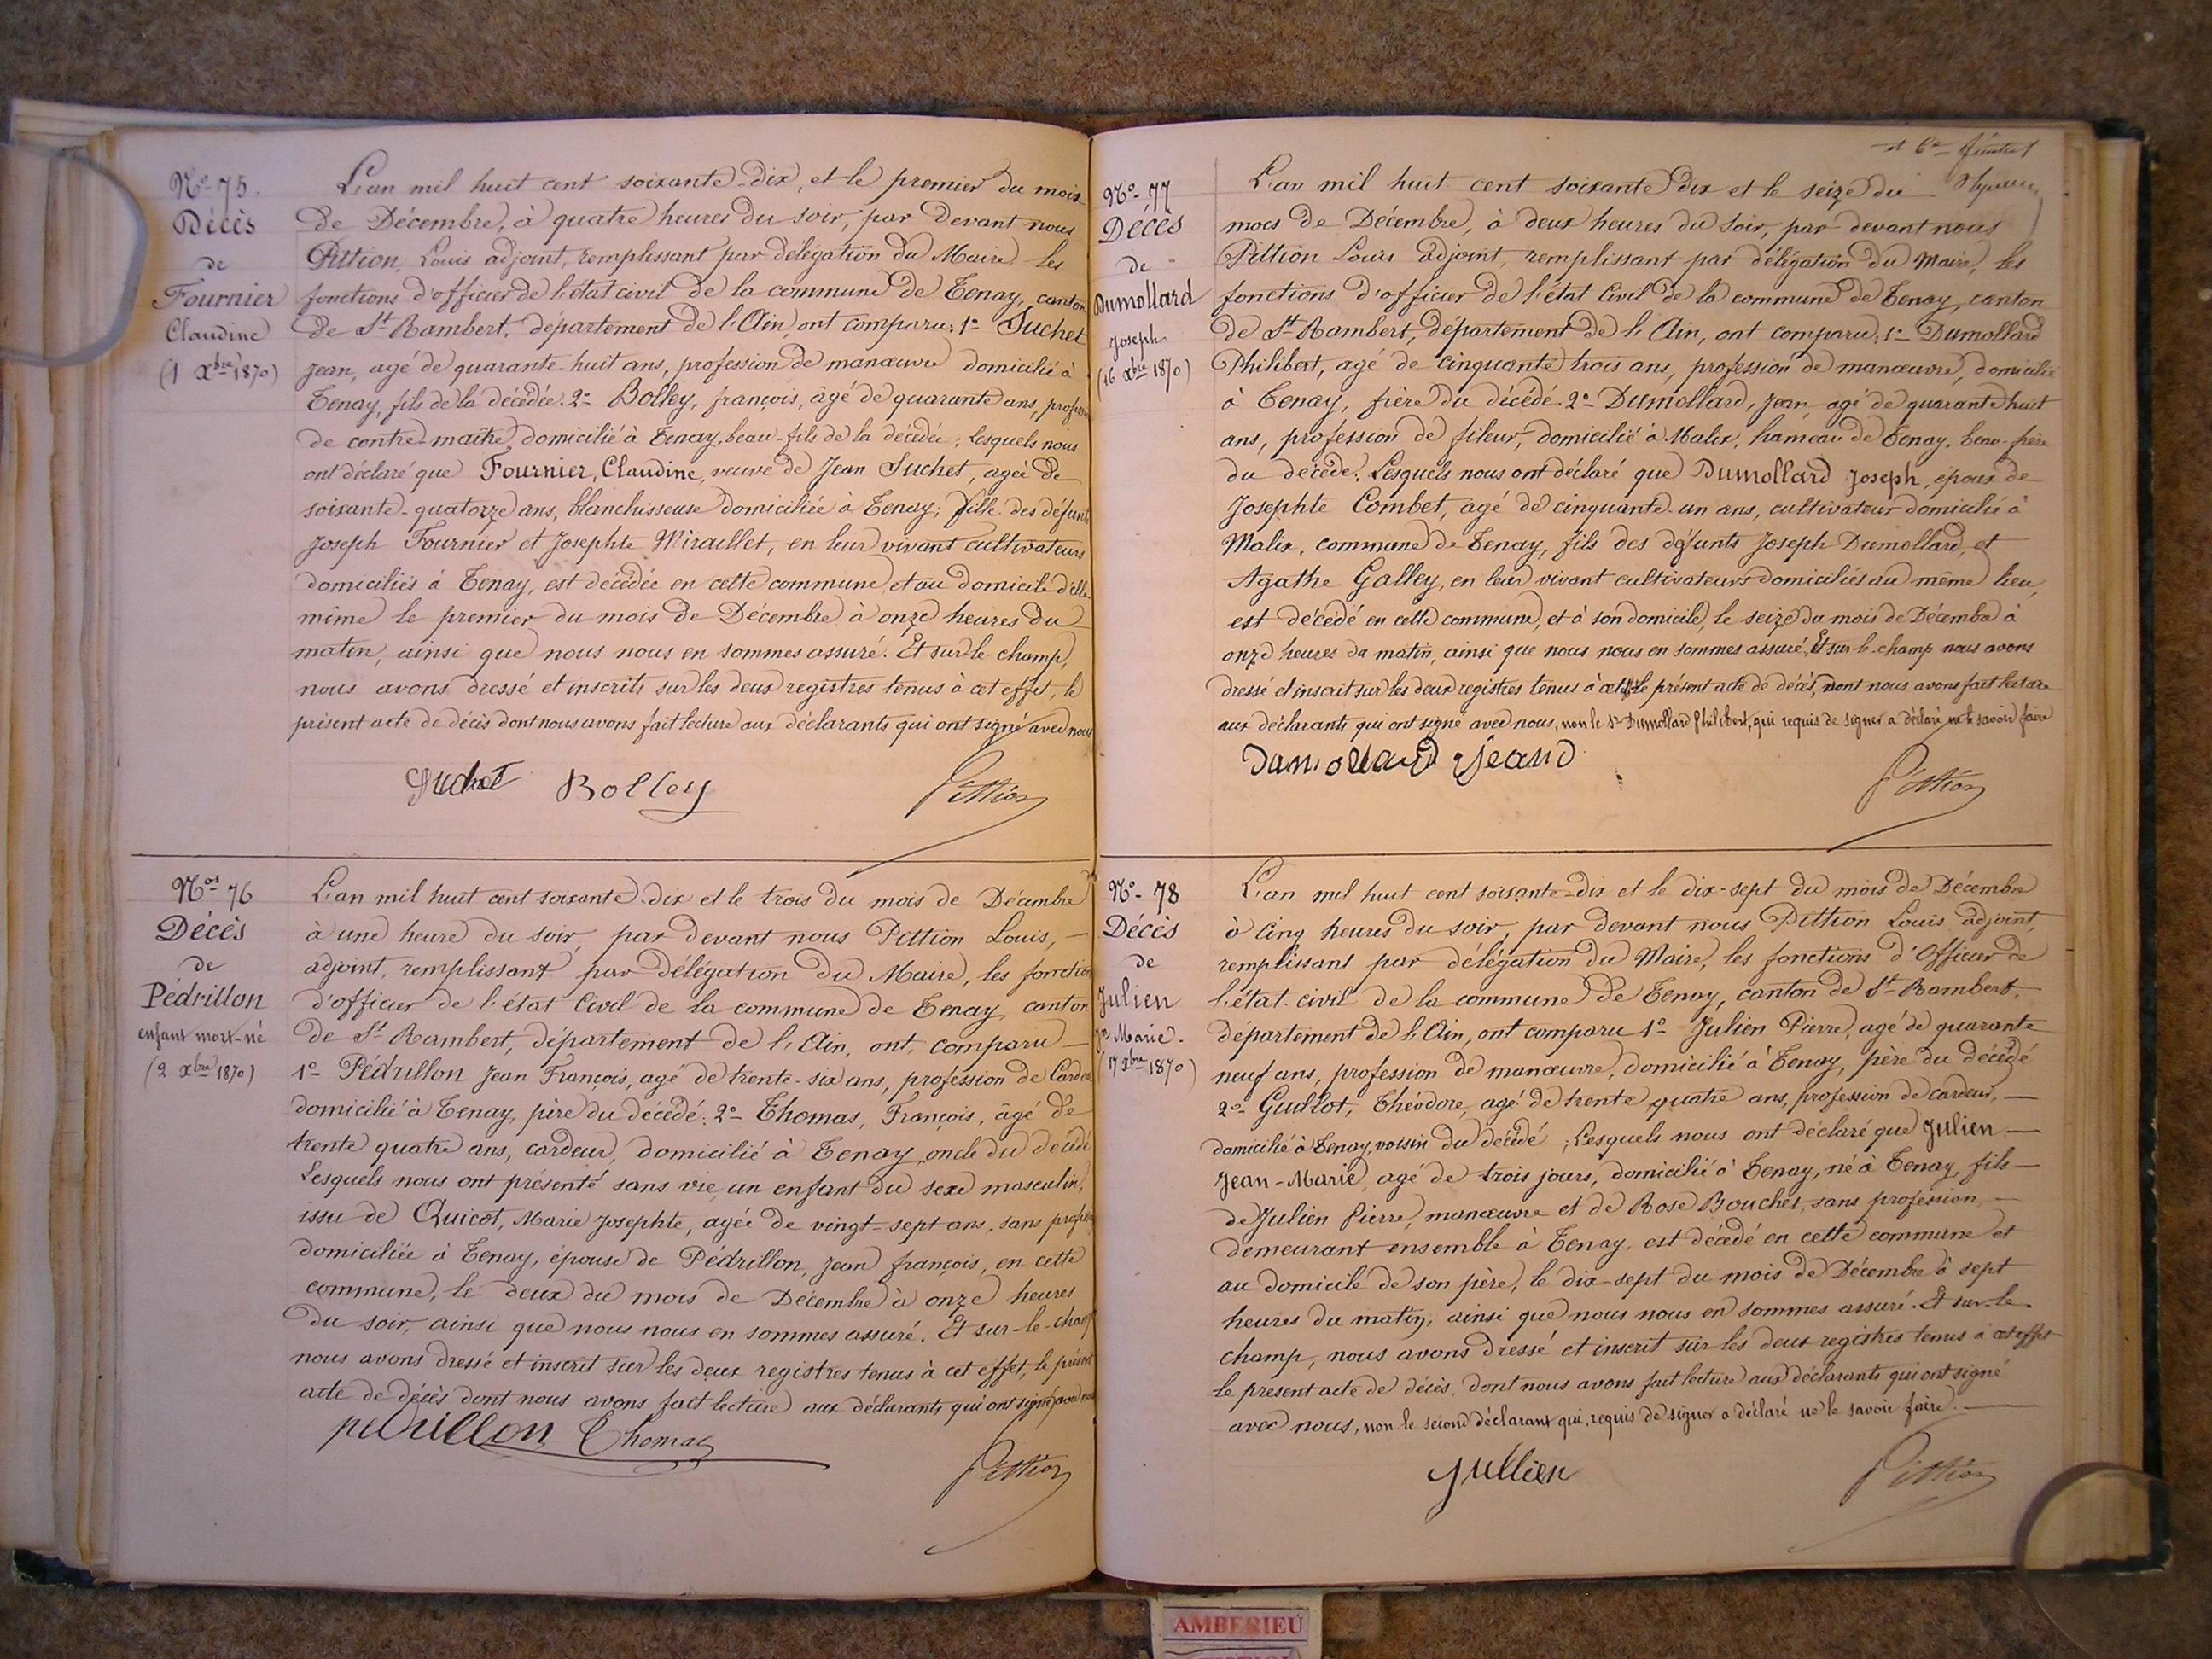 N° 75.
Décès
de
Fournier
Claudine
(1 Xbre 1870)
L'an mil huit cent soixante-dix, et le premier du mois
de Décembre, à quatre heures du soir, par devant nous
Pittion, Louis adjoint, remplissant par délégation du Maire les
fonctions d'officier de l'état civil de la commune de Tenay, canton
de St Rambert, département de l'Ain, ont comparu: 1° Suchet
Jean, agé de quarante-huit ans, profession de manœuvre domicilié à
Tenay, fils de la décédée. 2° Bolley, françois, âgé de quarante ans, profession
de contre-maître, domicilié à Tenay, beau-fils de la décédée; Lesquels nous
ont déclaré que Fournier, Claudine, veuve de Jean Suchet, agée de
soixante-quatorze ans, blanchisseuse domiciliée à Tenay; fille des défunts
Joseph Fournier et Josephte Miraillet, en leur vivant cultivateurs
domiciliés à Tenay, est décédée en cette commune, et au domicile d'elle
même le premier du mois de Décembre à onze heures du
matin, ainsi que nous nous en sommes assuré. Et sur-le-champ,
nous avons dressé et inscrits sur les deux registres tenus à cet effet, le
présent acte de décès dont nous avons fait lecture aux déclarants qui ont signé avec nous
Suchet Bolley Pittion
Nos 76
Décès
de
Pédrillon
enfant mort-né
(2 Xbre 1870)
L'an mil huit cent soixante-dix et le trois du mois de Décembre
à une heure du soir, par devant nous Pittion Louis, —
adjoint, remplissant par délégation du Maire, les fonction
d'officier de l'état Civil de la commune de Tenay canton
de St Rambert, département de l'Ain, ont comparu —
1° Pédrillon Jean François, agé de trente-six ans, profession de Cardeur
domicilié à Tenay, père du décédé: 2° Thomas, François, âgé de
trente quatre ans, cardeur, domicilié à Tenay, oncle du décédé
Lesquels nous ont présenté sans vie, un enfant du sexe masculin,
issu de Quicot, Marie Josephte, agée de vingt-sept ans, sans profession
domiciliée à Tenay, épouse de Pédrillon, Jean françois, en cette
commune, le deux du mois de Décembre à onze heures
du soir, ainsi que nous nous en sommes assuré. Et sur-le-champ
nous avons dressé et inscrit sur les deux registres tenus à cet effet, le présent
acte de décès dont nous avons fait lecture aux déclarants qui ont signé avec nous
pedrillon Thomas Pittion
et 6e
N° 77
Décès
de
Dumollard
Joseph
(16 Xbre 1870)
L'an mil huit cent soixante dix et le seize du
mois de Décembre, à deux heures du soir, par devant nous
Pittion Louis adjoint, remplissant par délégation du Maire, les
fonctions d'officier de l'état Civil de la commune de Tenay, canton
de St Rambert, département de l'Ain, ont comparu: 1° Dumollard
Philibert, agé de cinquante trois ans, profession de manœuvre, domicilié
à Tenay, frère du décédé. 2° Dumollard, Jean, agé de quarante huit
ans, profession de fileur, domicilié à Malix, hameau de Tenay, beau-frère
du décédé. Lesquels nous ont déclaré que Dumollard Joseph, époux de
Josephte Combet, agé de cinquante-un ans, cultivateur domicilié à
Malix, commune de Tenay, fils des défunts Joseph Dumollard, et
Agathe Galley, en leur vivant cultivateurs domiciliés au même lieu,
est décédé en cette commune, et à son domicile, le seize du mois de Décembre à
onze heures du matin, ainsi que nous nous en sommes assuré. Et sur-le-champ nous avons
dressé et inscrit sur les deux registres tenus à cet effet le présent acte de décès, dont nous avons fait lecture
aux déclarants qui ont signé avec nous, non le Sr Dumollard Philibert, qui requis de signer a déclaré ne le savoir faire
Dumollard Jean Pittion
N° 78
Décès
de
Julien
Jn Marie.
(17 Xbre 1870)
L'an mil huit cent soixante-dix et le dix-sept du mois de Décembre
à cinq heures du soir, par devant nous Pittion Louis adjoint,
remplissant par délégation du Maire, les fonctions d'Officier de
l'état-civil de la commune de Tenay, canton de St Rambert,
département de l'Ain, ont comparu 1° Julien Pierre, agé de quarante
neuf ans, profession de manœuvre, domicilié à Tenay, père du décédé
2° Guillot, Théodore, agé de trente quatre ans, profession de cardeur, —
domicilié à Tenay, voisin du décédé; Lesquels nous ont déclaré que Julien —
Jean-Marie, agé de trois jours, domicilié à Tenay, né à Tenay, fils —
de Julien Pierre, manœuvre et de Rose Bouchet, sans profession, —
demeurant ensemble à Tenay, est décédé en cette commune et
au domicile de son père, le dix-sept du mois de Décembre à sept
heures du matin, ainsi que nous nous en sommes assuré. Et sur-le-
champ, nous avons dressé et inscrit sur les deux registres tenus à cet effet
le présent acte de décès, dont nous avons fait lecture aux déclarants qui ont signé
avec nous, non le second déclarant qui, requis de signer a déclaré ne le savoir faire. —
Jullien Pittion
AMBERIEU